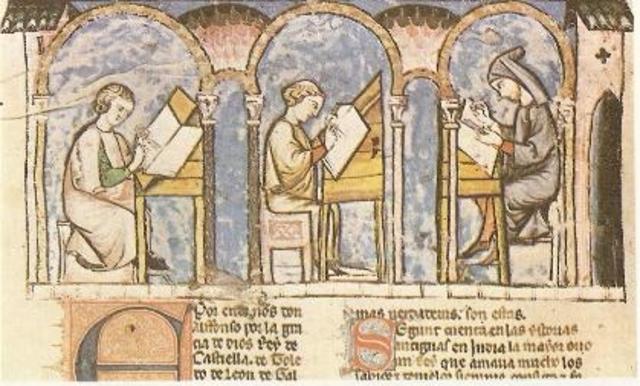 Por ende nos don
alffonso por la gra
cia de dios Rey de
Castiella. de Tole
do de Leon. de Gal
mas uerdaderas. son estas.
Segunt cuenta en las ystorias
antiguas en India la mayor ouo
un Rey que amaua mucho los